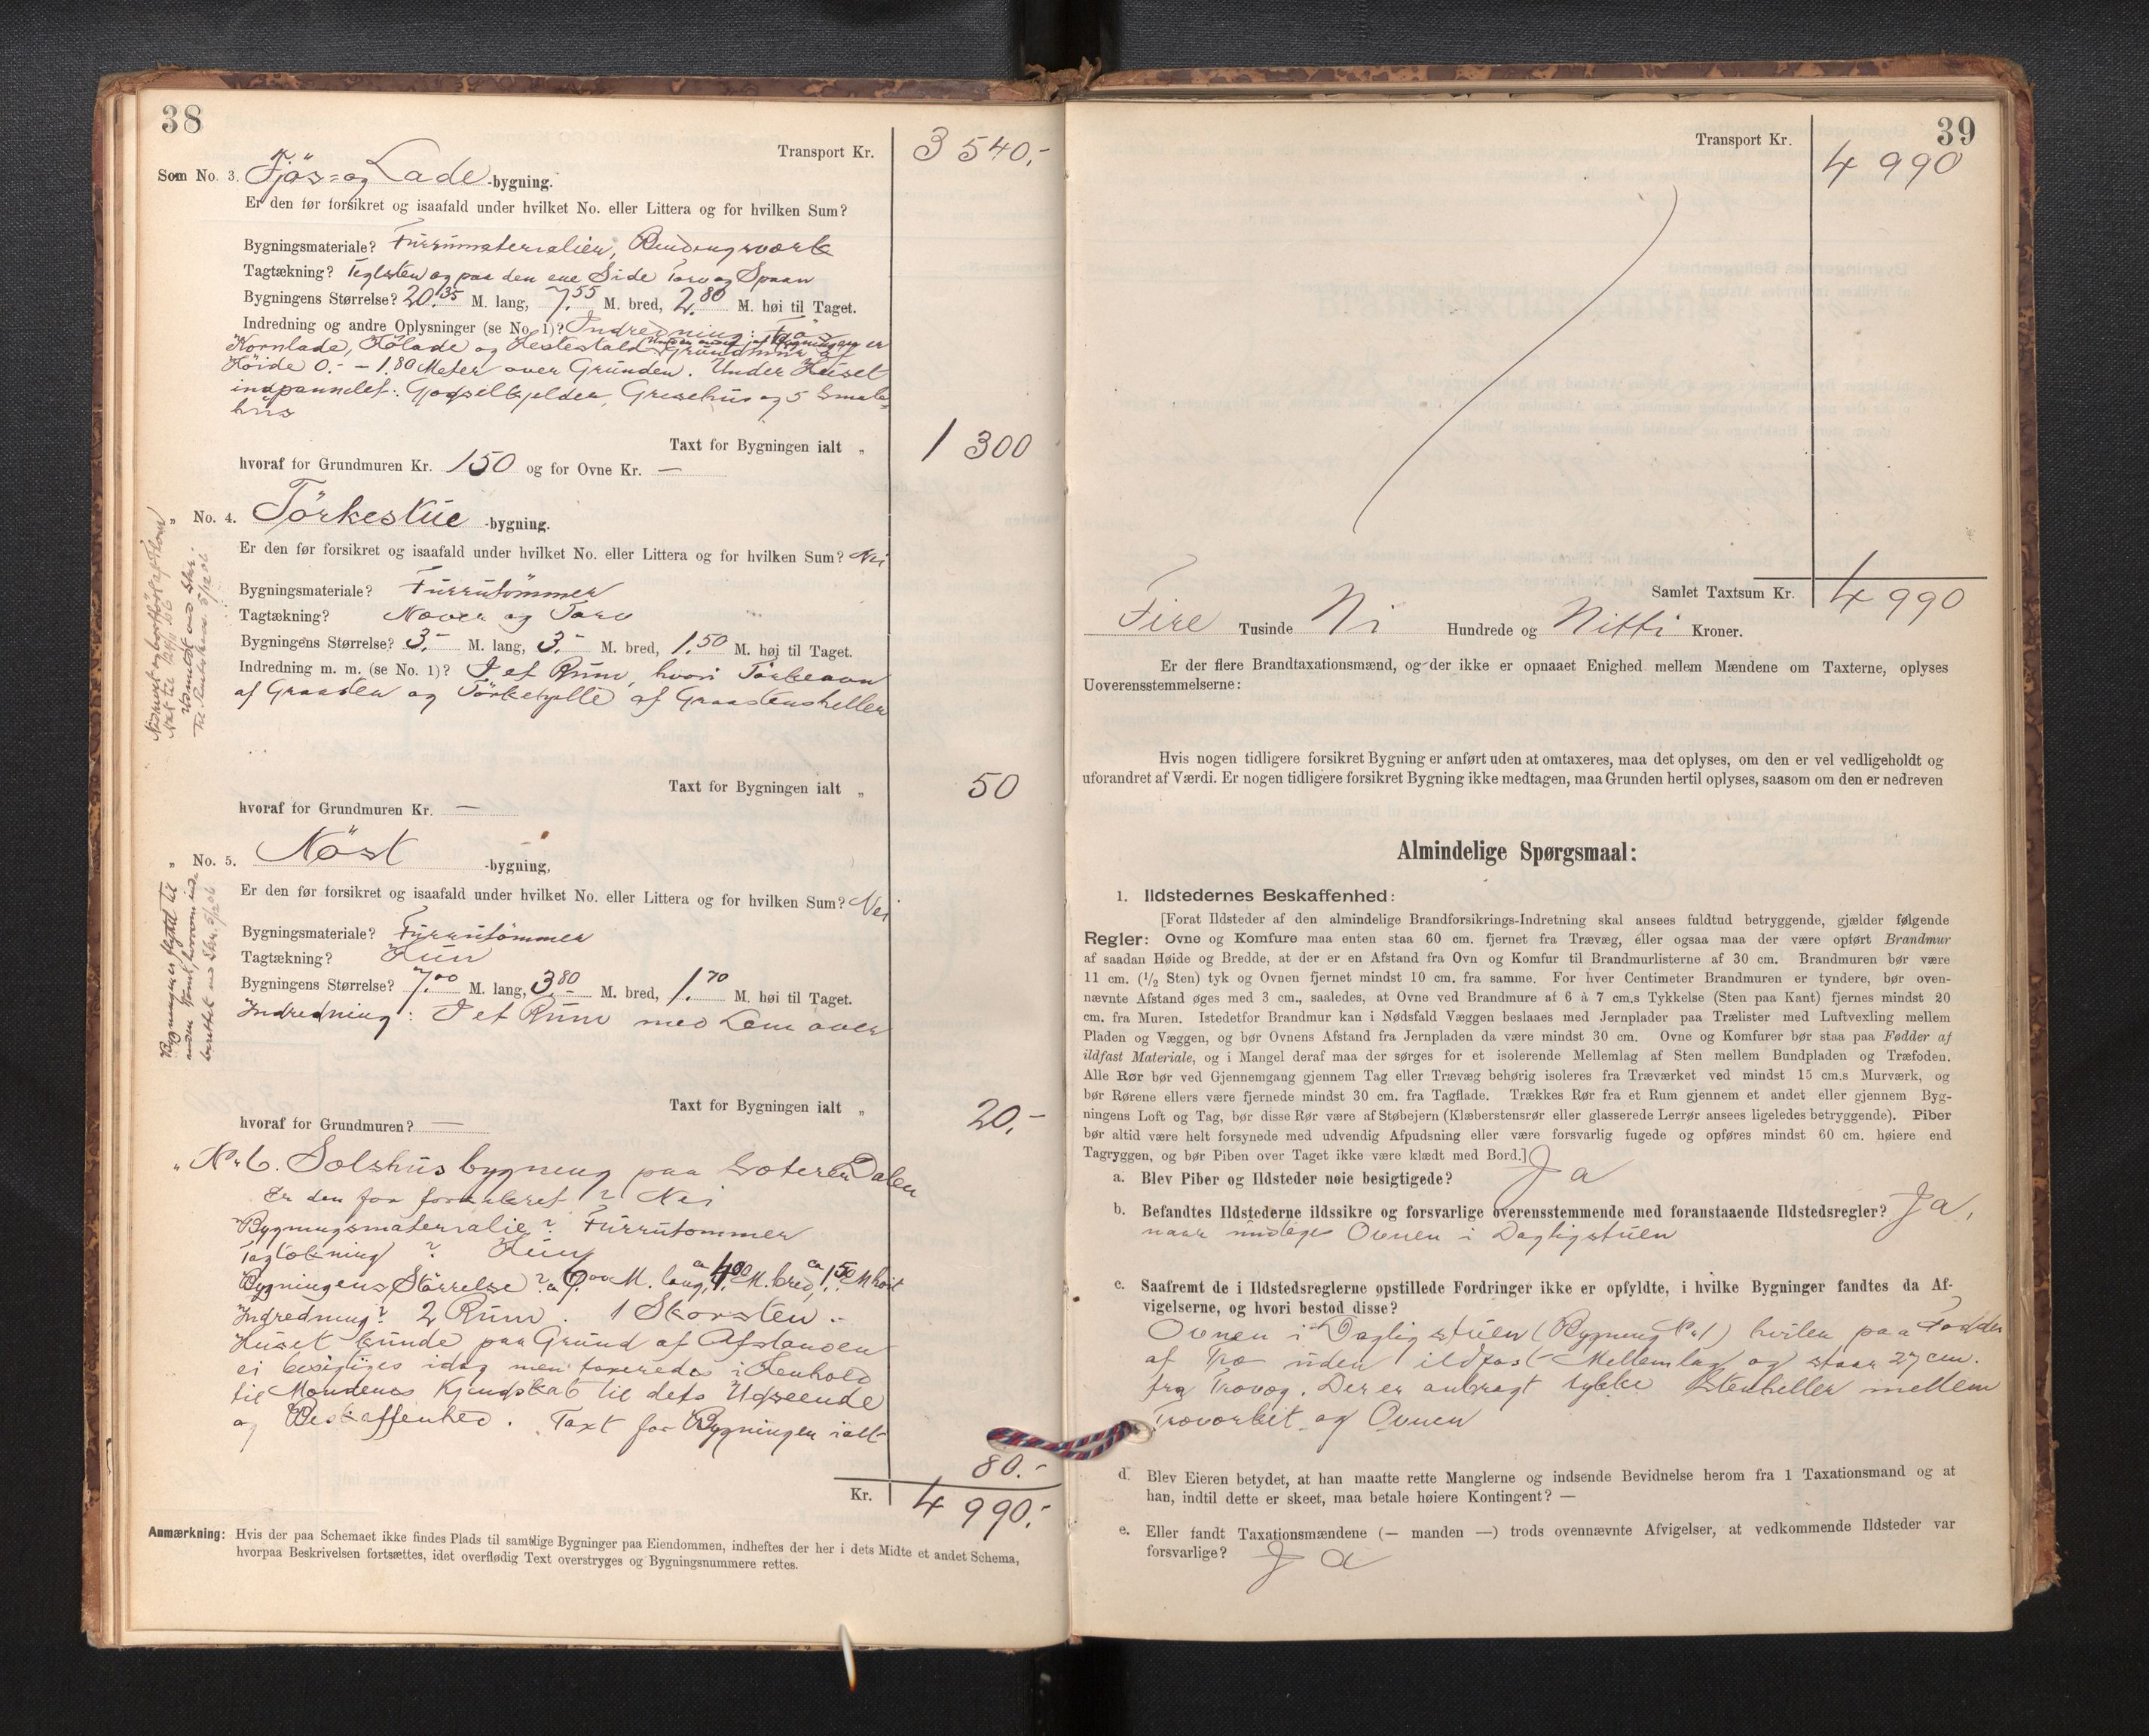 38
Transport Kr. 3 540.-
Som No. 3. Fjös- og Lade -bygning.
Er den før forsikret og isaafald under hvilket No. eller Littera og for hvilken Sum?
Bygningsmateriale? Furrumaterialier, Bindingsværk
Tagtækning? Teglsten og paa den ene Side Torv og Spaan
Bygningens Størrelse? 20.35 M. lang, 7.55 M. bred, 2.80 M. høi til Taget.
Indredning og andre Oplysninger (se No. 1)? Indredning: Fjös
Kornlade, Hölade og Hestestald Bygningen er Grundmur af
Höide 0.- - 1.80 Meter over Grunden. Under Huset
indpanelet: Gjødselkjelder, Grisehus og 5 Smale-
hus
Taxt for Bygningen ialt „ 1 300
hvoraf for Grundmuren Kr. 150 og for Ovne Kr. —
„ No. 4. Törkestue -bygning.
Er den før forsikret og isaafald under hvilket No. eller Littera og for hvilken Sum? Nei
Bygningsmateriale? Furrutömmer
Tagtækning? Næver og Torv
Bygningens Størrelse? 3.- M. lang, 3.- M. bred, 1.50 M. høi til Taget.
Indredning m. m. (se No. 1)? I et Rum, hvori Törkeovn
af Graasten og Törkehjelle af Graastensheller
Taxt for Bygningen ialt „ 50
hvoraf for Grundmuren Kr. —
„ No. 5. Nöst -bygning,
Er den før forsikret og isaafald under hvilket No. eller Littera og for hvilken Sum? Nei
Bygningsmateriale? Furrutömmer
Tagtækning? Hun
Bygningens Størrelse? 7.00 M. lang, 3.80 M. bred, 1.70 M. høi til Taget.
Indredning: I et Rum med Lem over
Taxt for Bygningen ialt „ 20.-
hvoraf for Grundmuren? —
„ No 6. Selshusbygning paa Dalen
Er den før forsikret? Nei
Bygningsmaterialie? Furrutømmer
Tagtækning? Hun
Bygningens Störrelse? ca 6.00 M. lang, ca 4.00 M. bred, ca 1.50 M höit
Indredning? 2 Rum. 1 Skorsten.-
Huset kunde paa Grund af Afstanden
ei besigtiges idag men taxeredes i Henhold
til Mændenes Kjendskab til dets Udseende
og Beskaffenhed. Taxt for Bygningen ialt
80.-
Kr. 4 990.-
Anmærkning: Hvis der paa Schemaet ikke findes Plads til samtlige Bygninger paa Eiendommen, indheftes der her i dets Midte et andet Schema,
hvorpaa Beskrivelsen fortsættes, idet overflødig Text overstryges og Bygningsnummere rettes.
39
Transport Kr. 4 990
Samlet Taxtsum Kr. 4 990
Fire Tusinde Ni Hundrede og Nitti Kroner.
Er der flere Brandtaxationsmænd, og der ikke er opnaaet Enighed mellem Mændene om Taxterne, oplyses
Uoverensstemmelserne:
Hvis nogen tidligere forsikret Bygning er anført uden at omtaxeres, maa det oplyses, om den er vel vedligeholdt og
uforandret af Værdi. Er nogen tidligere forsikret Bygning ikke medtagen, maa Grunden hertil oplyses, saasom om den er nedreven
Almindelige Spørgsmaal:
1. Ildstedernes Beskaffenhed:
[Forat Ildsteder af den almindelige Brandforsikrings-Indretning skal ansees fuldtud betryggende, gjælder følgende
Regler: Ovne og Komfure maa enten staa 60 cm. fjernet fra Trævæg, eller ogsaa maa der være opført Brandmur
af saadan Høide og Bredde, at der er en Afstand fra Ovn og Komfur til Brandmurlisterne af 30 cm. Brandmuren bør være
11 cm. (1/2 Sten) tyk og Ovnen fjernet mindst 10 cm. fra samme. For hver Centimeter Brandmuren er tyndere, bør oven-
nævnte Afstand øges med 3 cm., saaledes, at Ovne ved Brandmure af 6 à 7 cm.s Tykkelse (Sten paa Kant) fjernes mindst 20
cm. fra Muren. Istedetfor Brandmur kan i Nødsfald Væggen beslaaes med Jernplader paa Trælister med Luftvexling mellem
Pladen og Væggen, og bør Ovnens Afstand fra Jernpladen da være mindst 30 cm. Ovne og Komfurer bør staa paa Fødder af
ildfast Materiale, og i Mangel deraf maa der sørges for et isolerende Mellemlag af Sten mellem Bundpladen og Træfoden.
Alle Rør bør ved Gjennemgang gjennem Tag eller Trævæg behørig isoleres fra Træværket ved mindst 15 cm.s Murværk, og
bør Rørene ellers være fjernede mindst 30 cm. fra Tagflade. Trækkes Rør fra et Rum gjennem et andet eller gjennem Byg-
ningens Loft og Tag, bør disse Rør være af Støbejern (Klæberstensrør eller glasserede Lerrør ansees ligeledes betryggende). Piber
bør altid være helt forsynede med udvendig Afpudsning eller være forsvarlig fugede og opføres mindst 60 cm. høiere end
Tagryggen, og bør Piben over Taget ikke være klædt med Bord.]
a. Blev Piber og Ildsteder nøie besigtigede? Ja
b. Befandtes Ildstederne ildssikre og forsvarlige overensstemmende med foranstaaende Ildstedsregler? Ja,
naar undtages Ovnen i Dagligstuen
c. Saafremt de i Ildstedsreglerne opstillede Fordringer ikke er opfyldte, i hvilke Bygninger fandtes da Af-
vigelserne, og hvori bestod disse?
Ovnen i Dagligstuen (Bygning No 1) hviler paa Fødder
af Træ uden ildfast Mellemlag og staar 27 cm.
fra Trævæg. Der er anbragt tykke Stenheller mellem
Træværket og Ovnen
d. Blev Eieren betydet, at han maatte rette Manglerne og indsende Bevidnelse herom fra 1 Taxationsmand og at
han, indtil dette er skeet, maa betale høiere Kontingent? —
e. Eller fandt Taxationsmændene (— manden —) trods ovennævnte Afvigelser, at vedkommende Ildsteder var
forsvarlige? Ja